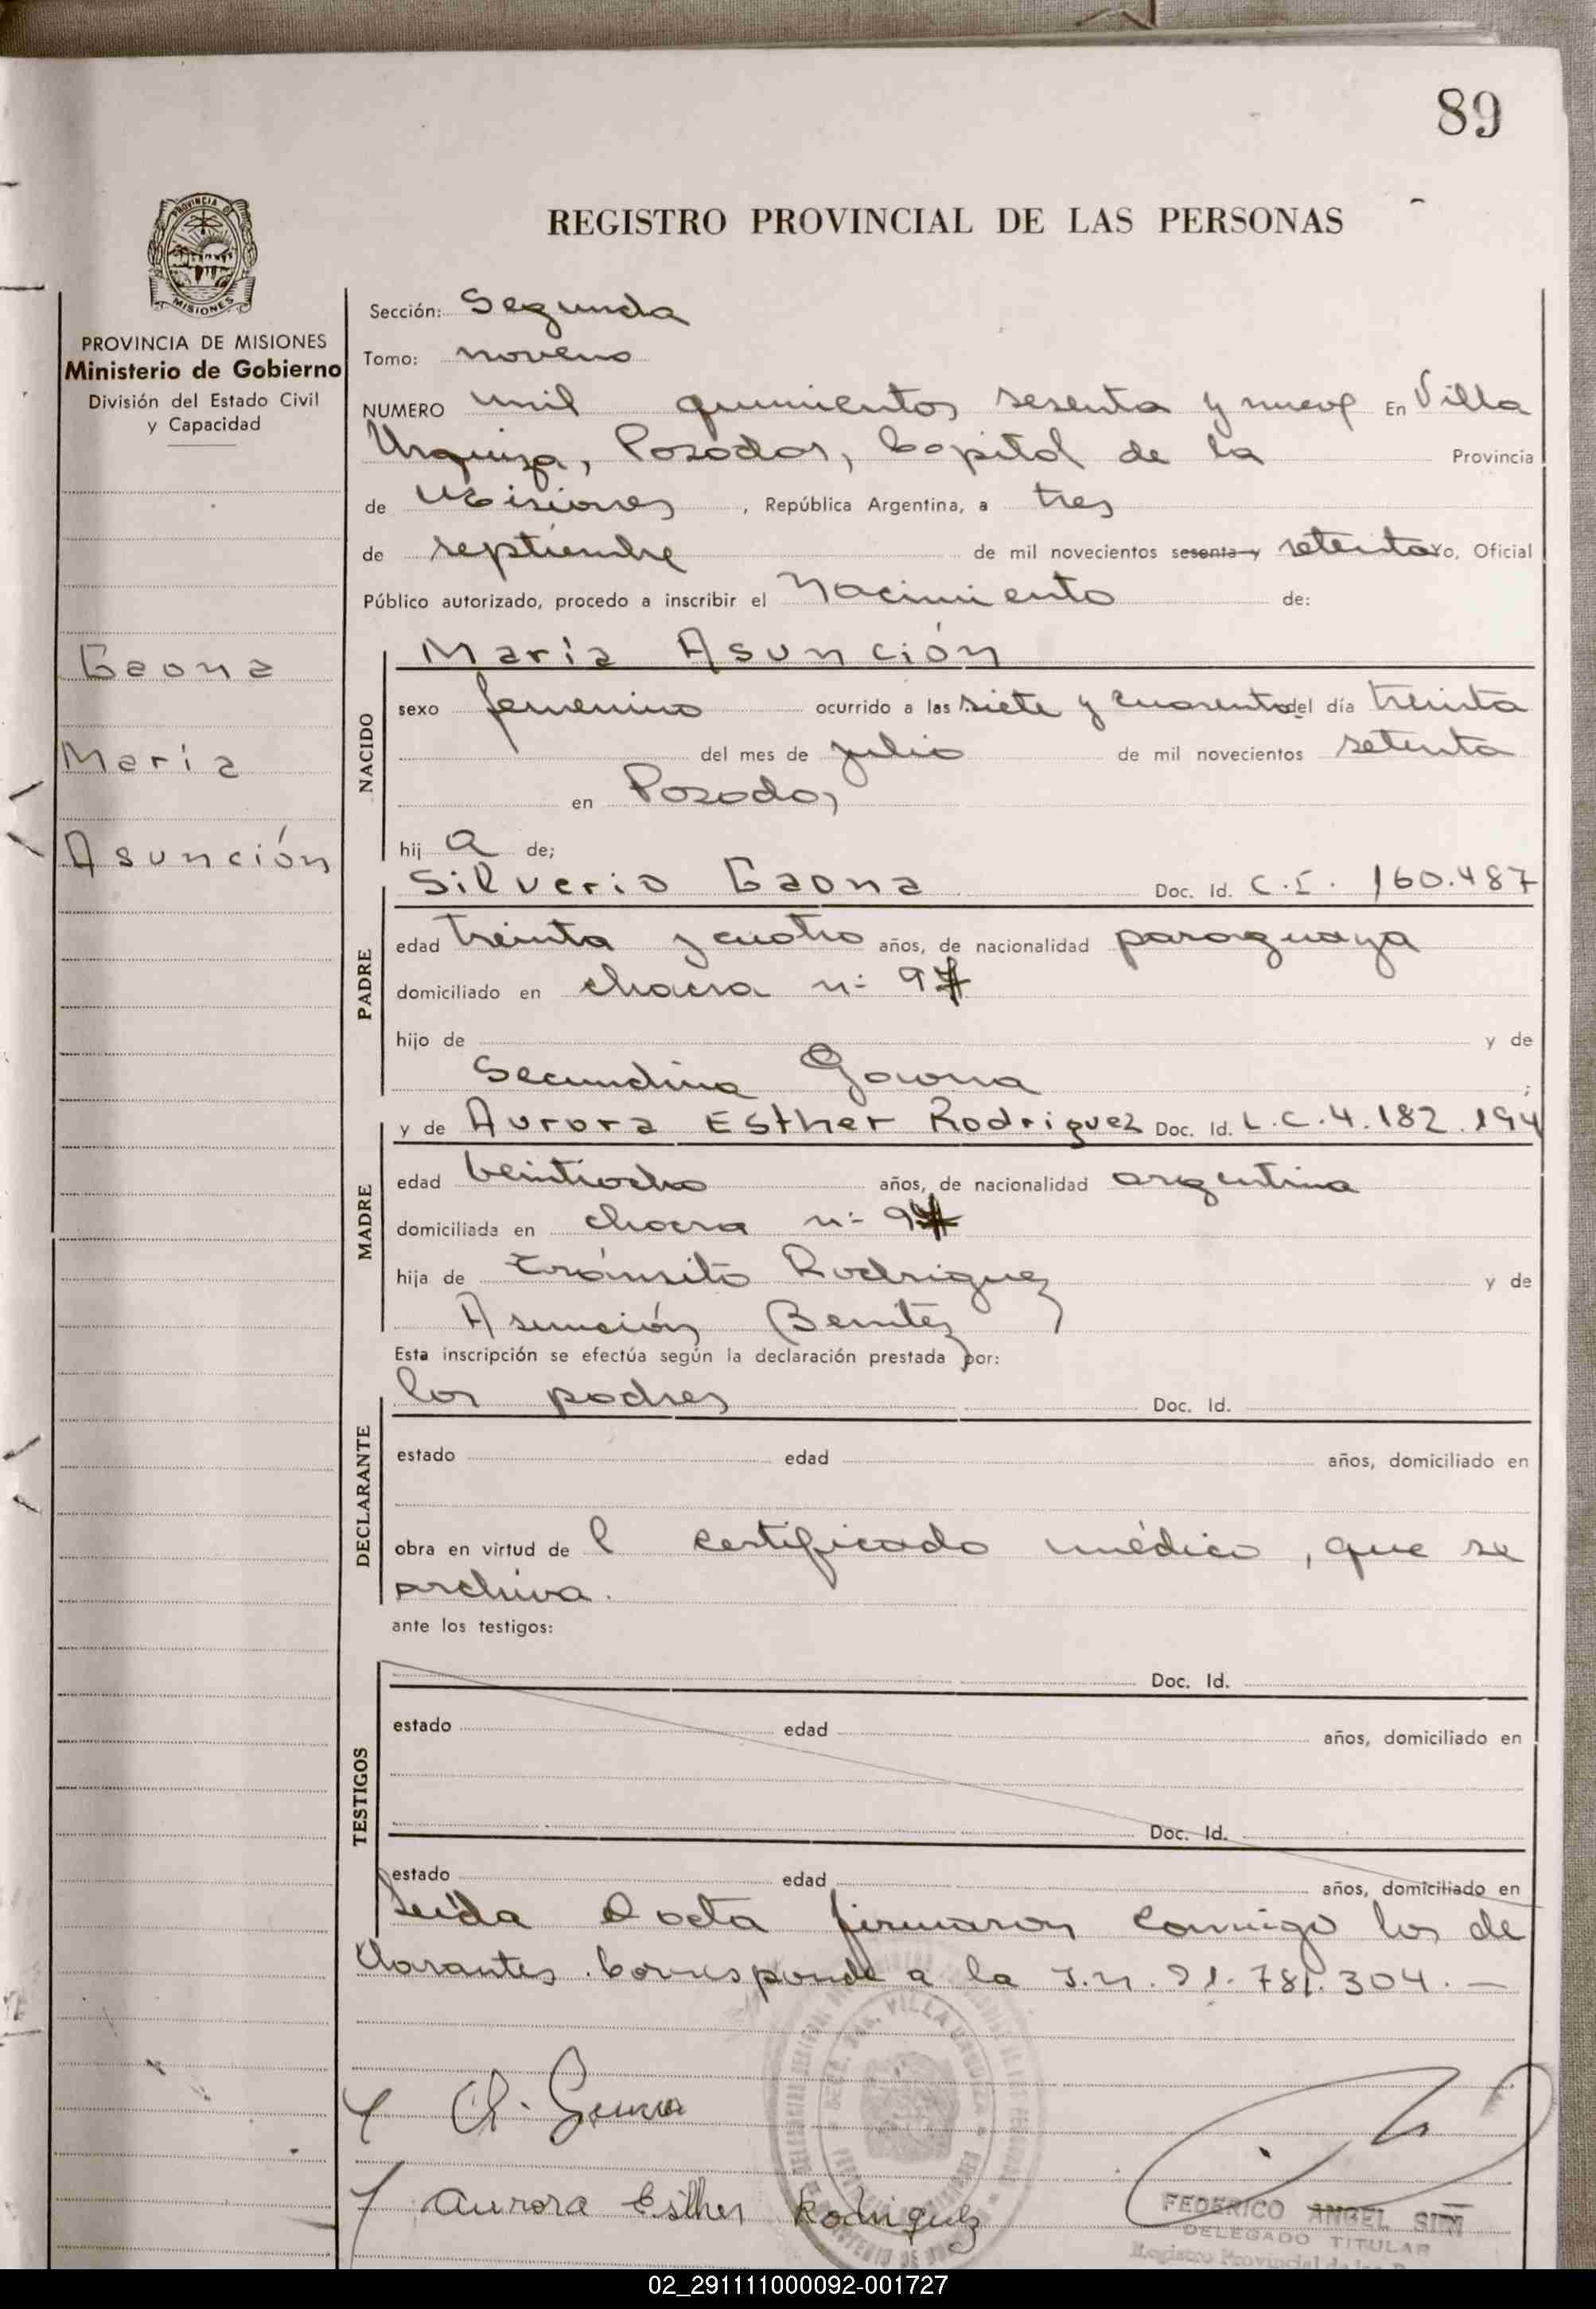 89
REGISTRO PROVINCIAL DE LAS PERSONAS
PROVINCIA DE
MISIONES
PROVINCIA DE MISIONES
Ministerio de Gobierno
División del Estado Civil
y Capacidad
Gaona
María
Asunción
Sección: Segunda
Tomo: noveno
NUMERO mil quinientos sesenta y nueve En Villa
Urquiza, Posadas, Capital de la Provincia
de Misiones, República Argentina, a tres
de septiembre de mil novecientos sesenta y setenta yo, Oficial
Público autorizado, procedo a inscribir el Nacimiento de:
María Asunción
NACIDO
sexo femenino ocurrido a las siete y cuarenta del día treinta
del mes de julio de mil novecientos setenta
en Posadas
hij a de;
Silverio Gaona Doc. Id. C.I. 160.487
PADRE
edad treinta y cuatro años, de nacionalidad paraguaya
domiciliado en chacra n: 97
hijo de y de
Secundina Gaona ;
y de Aurora Esther Rodriguez Doc. Id. L.C. 4.182.194
MADRE
edad beintiocho años, de nacionalidad argentina
domiciliada en chacra n: 97
hija de tránsito Rodriguez y de
Asunción Benitez
Esta inscripción se efectúa según la declaración prestada por:
los padres Doc. Id.
DECLARANTE
estado edad años, domiciliado en
obra en virtud de l certificado médico, que se
archiva.
ante los testigos:
Doc. Id.
TESTIGOS
estado edad años, domiciliado en
Doc. Id.
estado edad años, domiciliado en
Leída el acta firmaron conmigo los de
clarantes. Corresponde a la I.N. 21.781.304.—
Gaona
Aurora Esther Rodriguez
VILLA URQUIZA
FEDERICO ANGEL
DELEGADO TITULAR
Registro Provincial de las
02_291111000092-001727